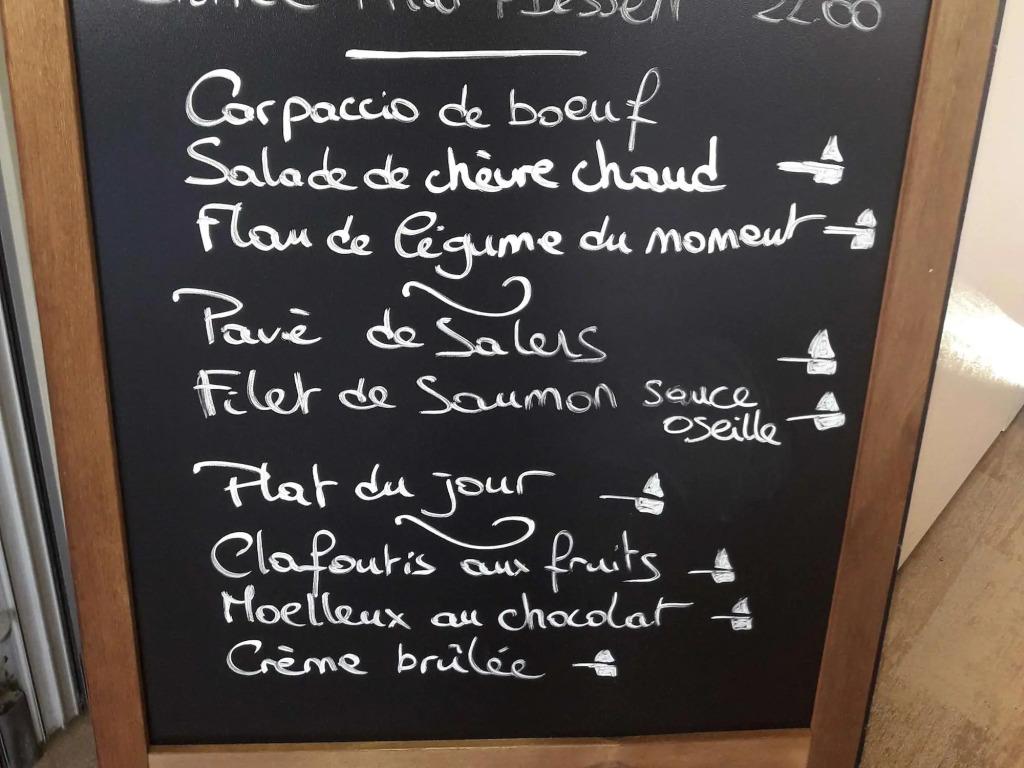 Plat Dessert 22.00
Carpaccio de boeuf
Salade de chèvre chaud
Flan de légume du moment
Pavè de Salers
Filet de Saumon sauce
oseille
Plat du jour
Clafoutis aux fruits
Moelleux au chocolat
Crème brûlée